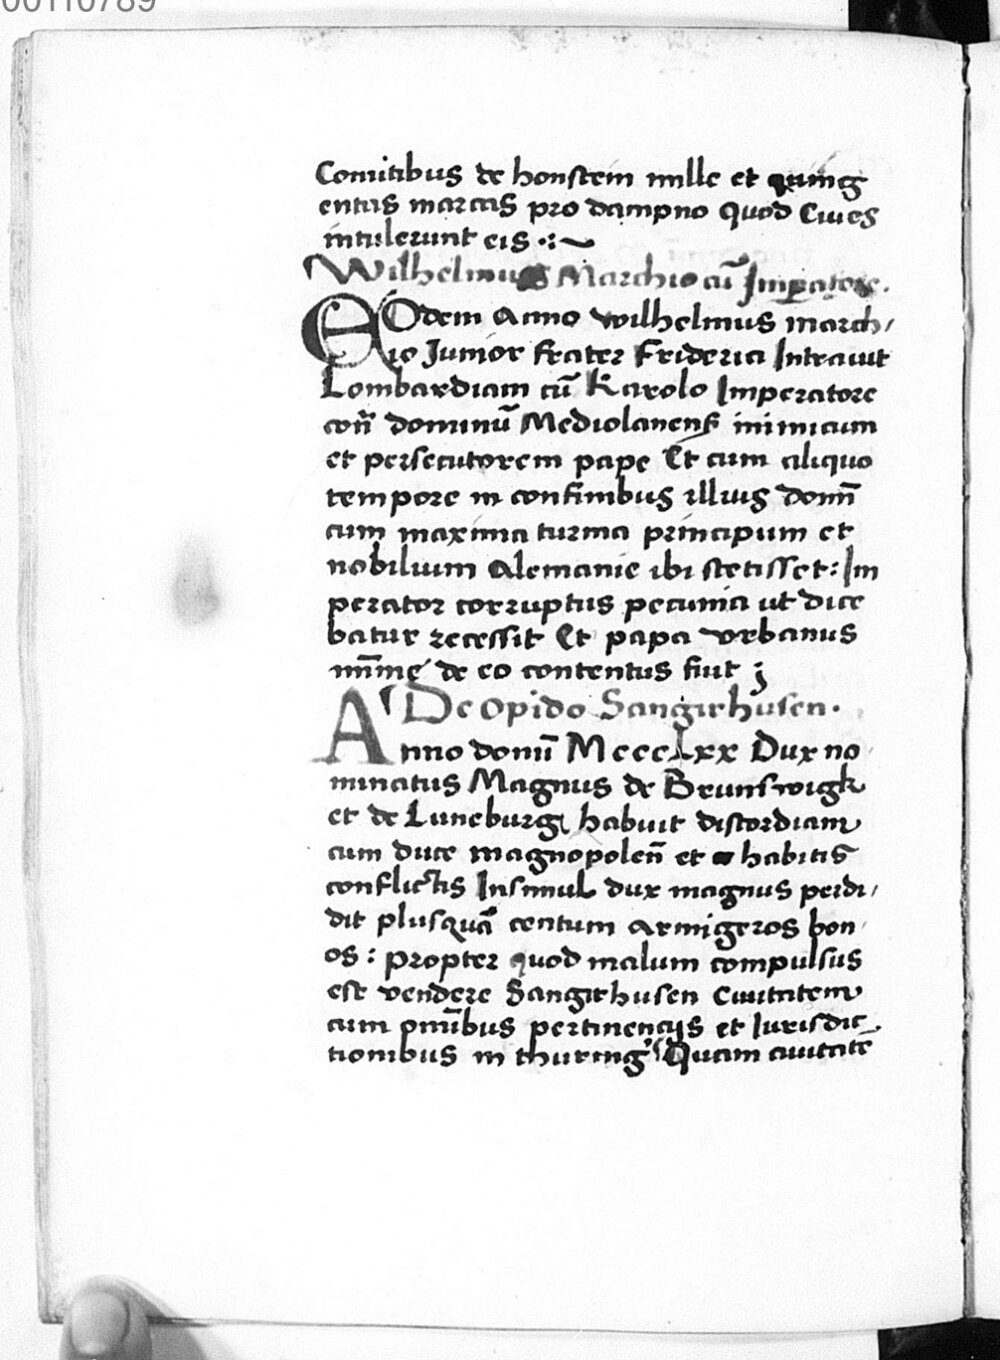 00110789
Comitibus de honstein mille et quing
entas marcas pro dampno quod Ciues
intulerunt eis .:~
Wilhelmus Marchio cū Imperatore.
EOdem Anno wilhelmus march/
io Junior frater Friderici Intrauit
Lombardiam cū Karolo Imperatore
con̄ dominū Mediolanens inimicum
et persecutorem pape Et cum aliquo
tempore in confinibus illius domī
cum maxima turma principum et
nobilium Alemanie ibi stetisset: Im
perator corruptus pecunia ut dice
batur recessit Et papa vrbanus
mīme de eo contentus fiut ;
De opido Sangirhusen.
Anno domī McccLxx Dux no
minatus Magnus de Brunswigk
et de Luneburg habuit discordiam
cum duce magnopolen̄ et habitis
conflictis Insimul dux magnus perdi/
dit plusquā centum armigeros bon
os: propter quod malum compulsus
est vendere Sangirhusen Ciuitatem
cum omībus pertinencijs et Iurisdic
tionibus in thuring Quam ciuitatē